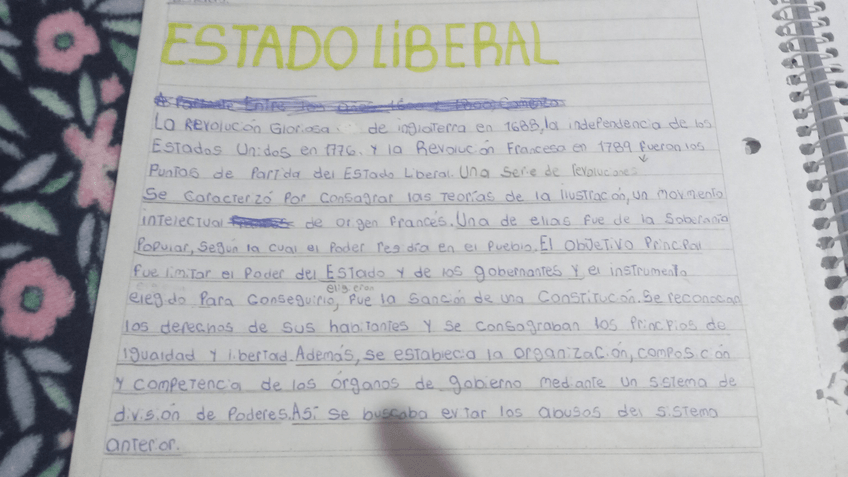 ESTADO LiBERAL
La Revolución Gloriosa de inglaterra en 1688, la independencia de los
Estados Unidos en 1776. Y la Revolución Francesa en 1789 fueron los
Puntos de Partida del Estado Liberal. Una serie de revoluciones
Se caracterizó Por consagrar las teorías de la ilustración, un movimiento
intelectual de origen francés. Una de ellas fue de la Soberanía
Popular, Según la cual el Poder residía en el Pueblo. El objetivo Principal
fue limitar el Poder del Estado Y de los gobernantes Y el instrumento
eligieron
elegido Para Conseguirlo, fue la Sanción de una Constitución. Se reconocían
los derechos de sus habitantes Y se consagraban los Principios de
igualdad Y libertad. Además, se establecía la organización, composición
Y competencia de los órganos de gobierno mediante un sistema de
división de Poderes. Así se buscaba evitar los abusos del sistema
anterior.